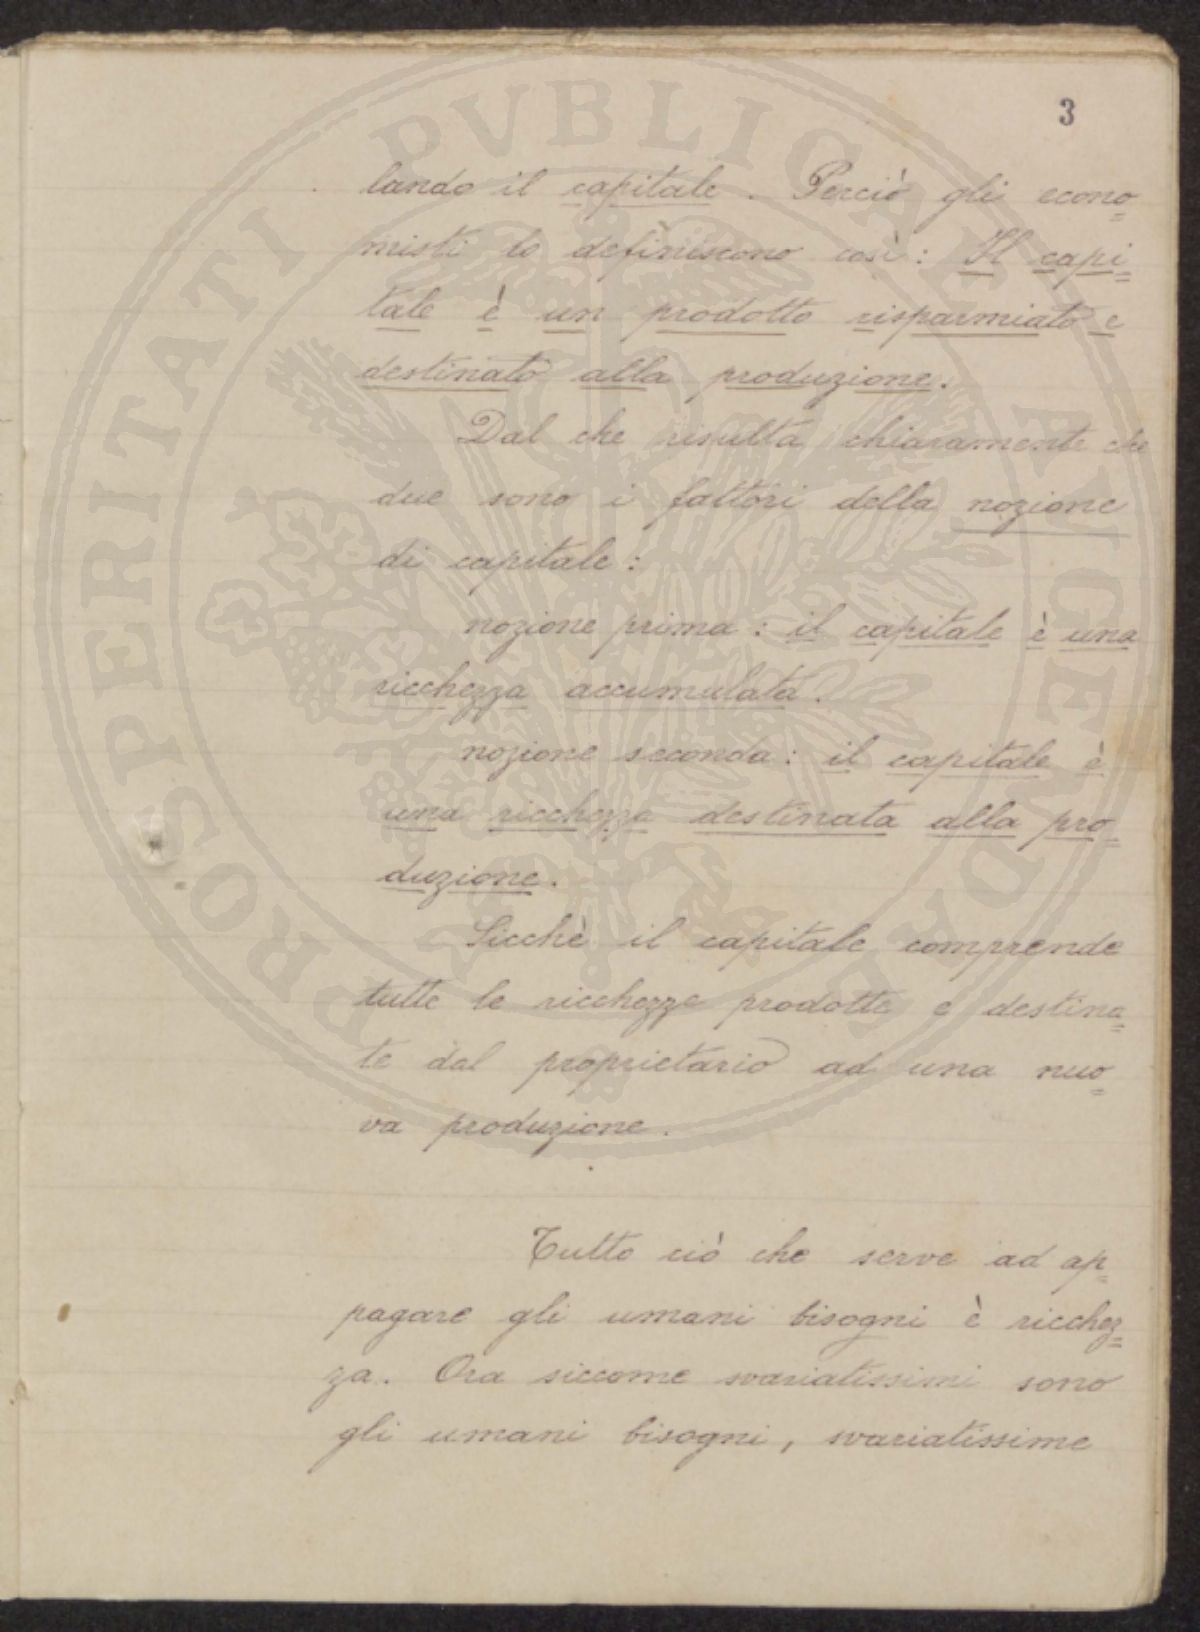 3
lando il capitale. Perciò gli econo=
misti lo definiscono così: Il capi=
tale è un prodotto risparmiato e
destinato alla produzione.
Dal che risulta chiaramente che
due sono i fattori della nozione
di capitale:
nozione prima: il capitale è una
ricchezza accumulata.
nozione seconda: il capitale è
una ricchezza destinata alla pro=
duzione.
Sicchè il capitale comprende
tutte le ricchezze prodotte e destina=
te dal proprietario ad una nuo=
va produzione.
Tutto ciò che serve ad ap=
pagare gli umani bisogni è ricchez=
za. Ora siccome svariatissimi sono
gli umani bisogni, svariatissime
PROSPERITATI PVBLICAE AVGENDAE